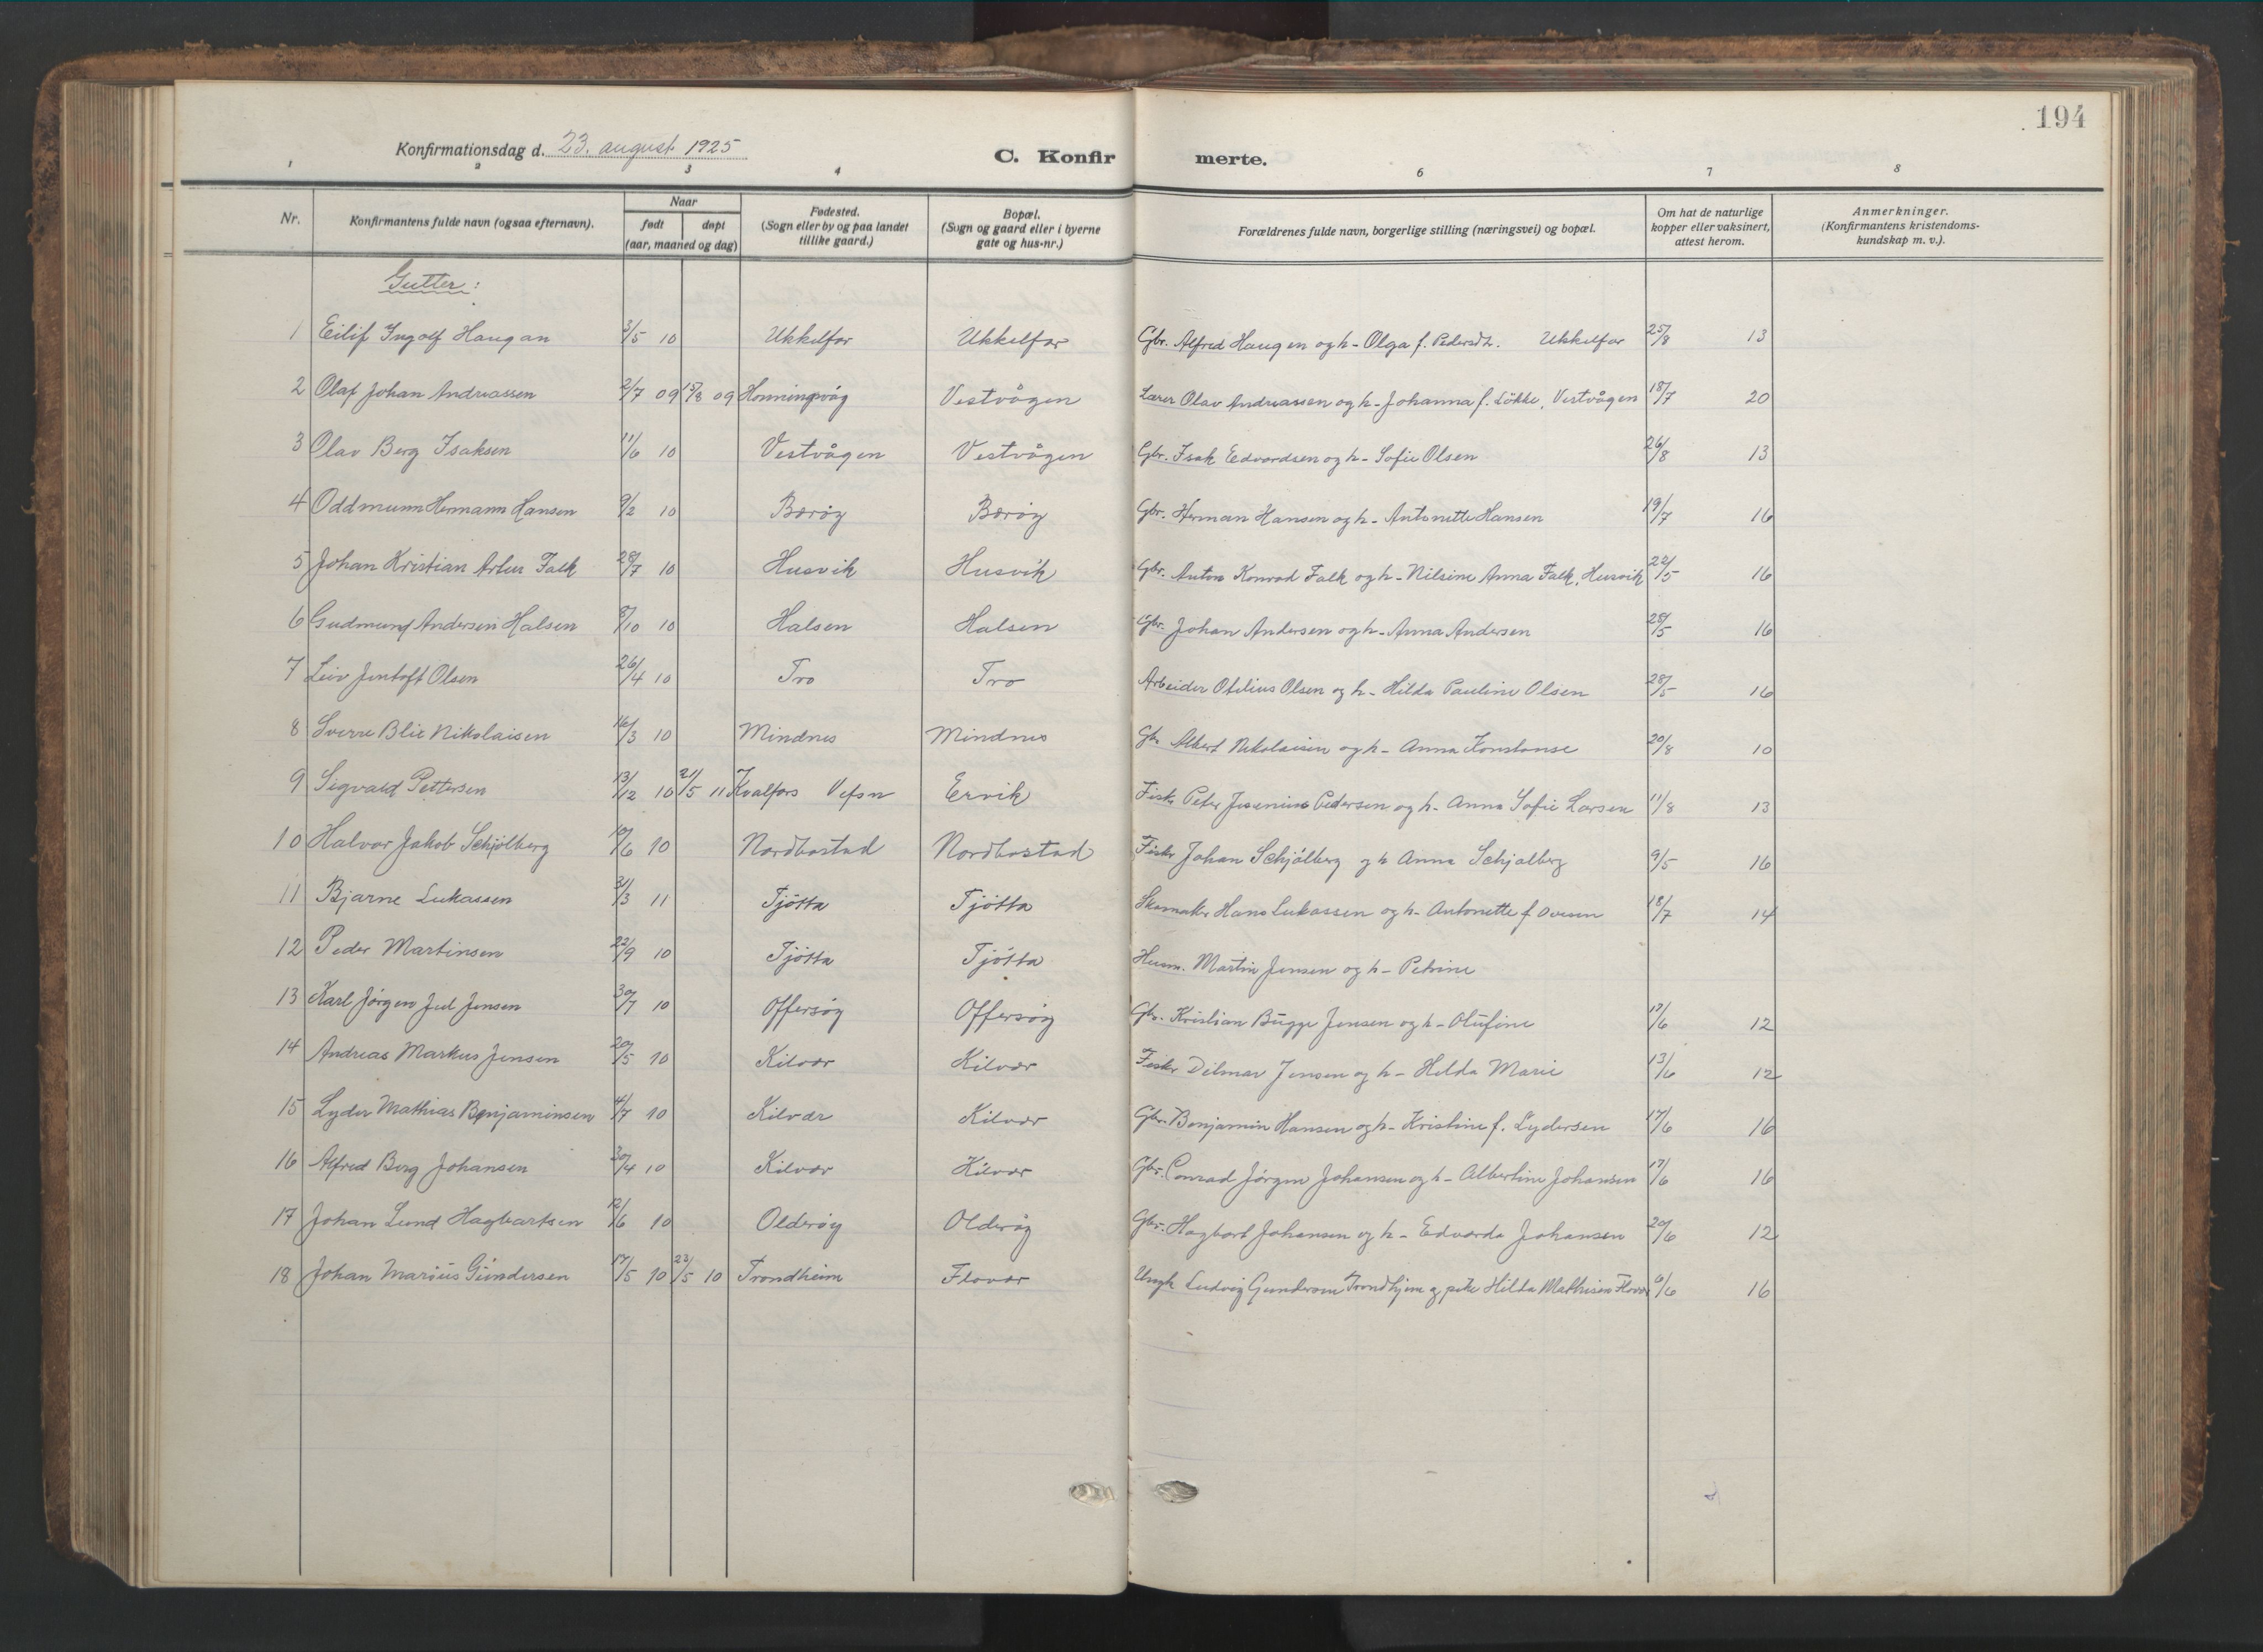 194
Konfirmationsdag d. 23. august 1925
C. Konfirmerte.
1 2 3 4 6 7 8
Nr. Konfirmantens fulde navn (ogsaa efternavn). Naar født døpt (aar, maaned og dag) Fødested. (Sogn eller by og paa landet tillike gaard.) Bopæl. (Sogn og gaard eller i byerne gate og hus-nr.) Forældrenes fulde navn, borgerlige stilling (næringsvei) og bopæl. Om hat de naturlige kopper eller vaksinert, attest herom. Anmerkninger. (Konfirmantens kristendomskundskap m. v.).
Gutter:
1 Eilif Ingolf Haugan 3/5 10 Ukkelfar Ukkelfar Gbr. Alfred Haugen og h- Olga f. Pedersdt. Ukkelfar 25/8 13
2 Olaf Johan Andreassen 2/7 09 15/8 09 Honningsvåg Vestvågen Lærer Olav Andreassen og h- Johanna f. Løkke, Vestvågen 18/7 20
3 Olav Berg Isaksen 11/6 10 Vestvågen Vestvågen Gbr. Isak Edvardsen og h- Sofie Olsen 26/8 13
4 Oddmunn Hermann Hansen 9/2 10 Bærøy Bærøy Gbr. Herman Hansen og h- Antonette Hansen 19/7 16
5 Johan Kristian Artur Falk 28/7 10 Husvik Husvik Gbr. Anton Konrad Falk og h- Nilsine Anna Falk, Husvik 22/5 16
6 Gudmund Andersen Halsen 8/10 10 Halsen Halsen Gbr. Johan Andersen og h- Anna Andersen 28/5 16
7 Leiv Jentoft Olsen 26/4 10 Tro Tro Arbeider Otelius Olsen og h- Hilda Pauline Olsen 28/5 16
8 Sverre Blie Nikolaisen 16/3 10 Mindnes Mindnes Gbr Albert Nikolaisen og h- Anna Konstanse 20/8 10
9 Sigvald Pettersen 13/12 10 21/5 11 Kvalfors Vefsn Ervik Fisker Peter Pedersen og h- Anna Sofie Larsen 11/8 13
10 Halvor Jakob Schjølberg 10/6 10 Nordbostad Nordbostad Fisker Johan Schjølberg og h Anna Schjølberg 9/5 16
11 Bjarne Lukassen 31/3 11 Tjøtta Tjøtta Skomaker Hans Lukassen og h- Antonette f 18/7 14
12 Peder Martinsen 22/9 10 Tjøtta Tjøtta Husm. Martin Jensen og h- Petrine
13 Karl Jørgen Juel Jensen 30/7 10 Offersøy Offersøy Gbr. Kristian Bugge Jensen og h- Olufine 13/6 12
14 Andreas Markus Jensen 20/5 10 Kilvær Kilvær Fisker Dilmar Jensen og h- Hilda Marie 13/6 12
15 Lyder Mathias Benjaminsen 4/7 10 Kilvær Kilvær Gbr. Benjamin Hansen og h- Kristine f. Lydersen 17/6 16
16 Alfred Berg Johansen 30/4 10 Kilvær Kilvær Gbr. Conrad Jørgen Johansen og h- Albertine Johansen 17/6 16
17 Johan Lund Hagbartsen 12/6 10 Olderøy Olderøy Gbr. Hagbart Johansen og h- Edvarda Johansen 20/6 12
18 Johan Marius Gundersen 17/5 10 23/5 10 Trondheim Flovær Ungk Ludvig Gundersen Trondhjem og pike Hilda Mathisen Flovær 6/6 16